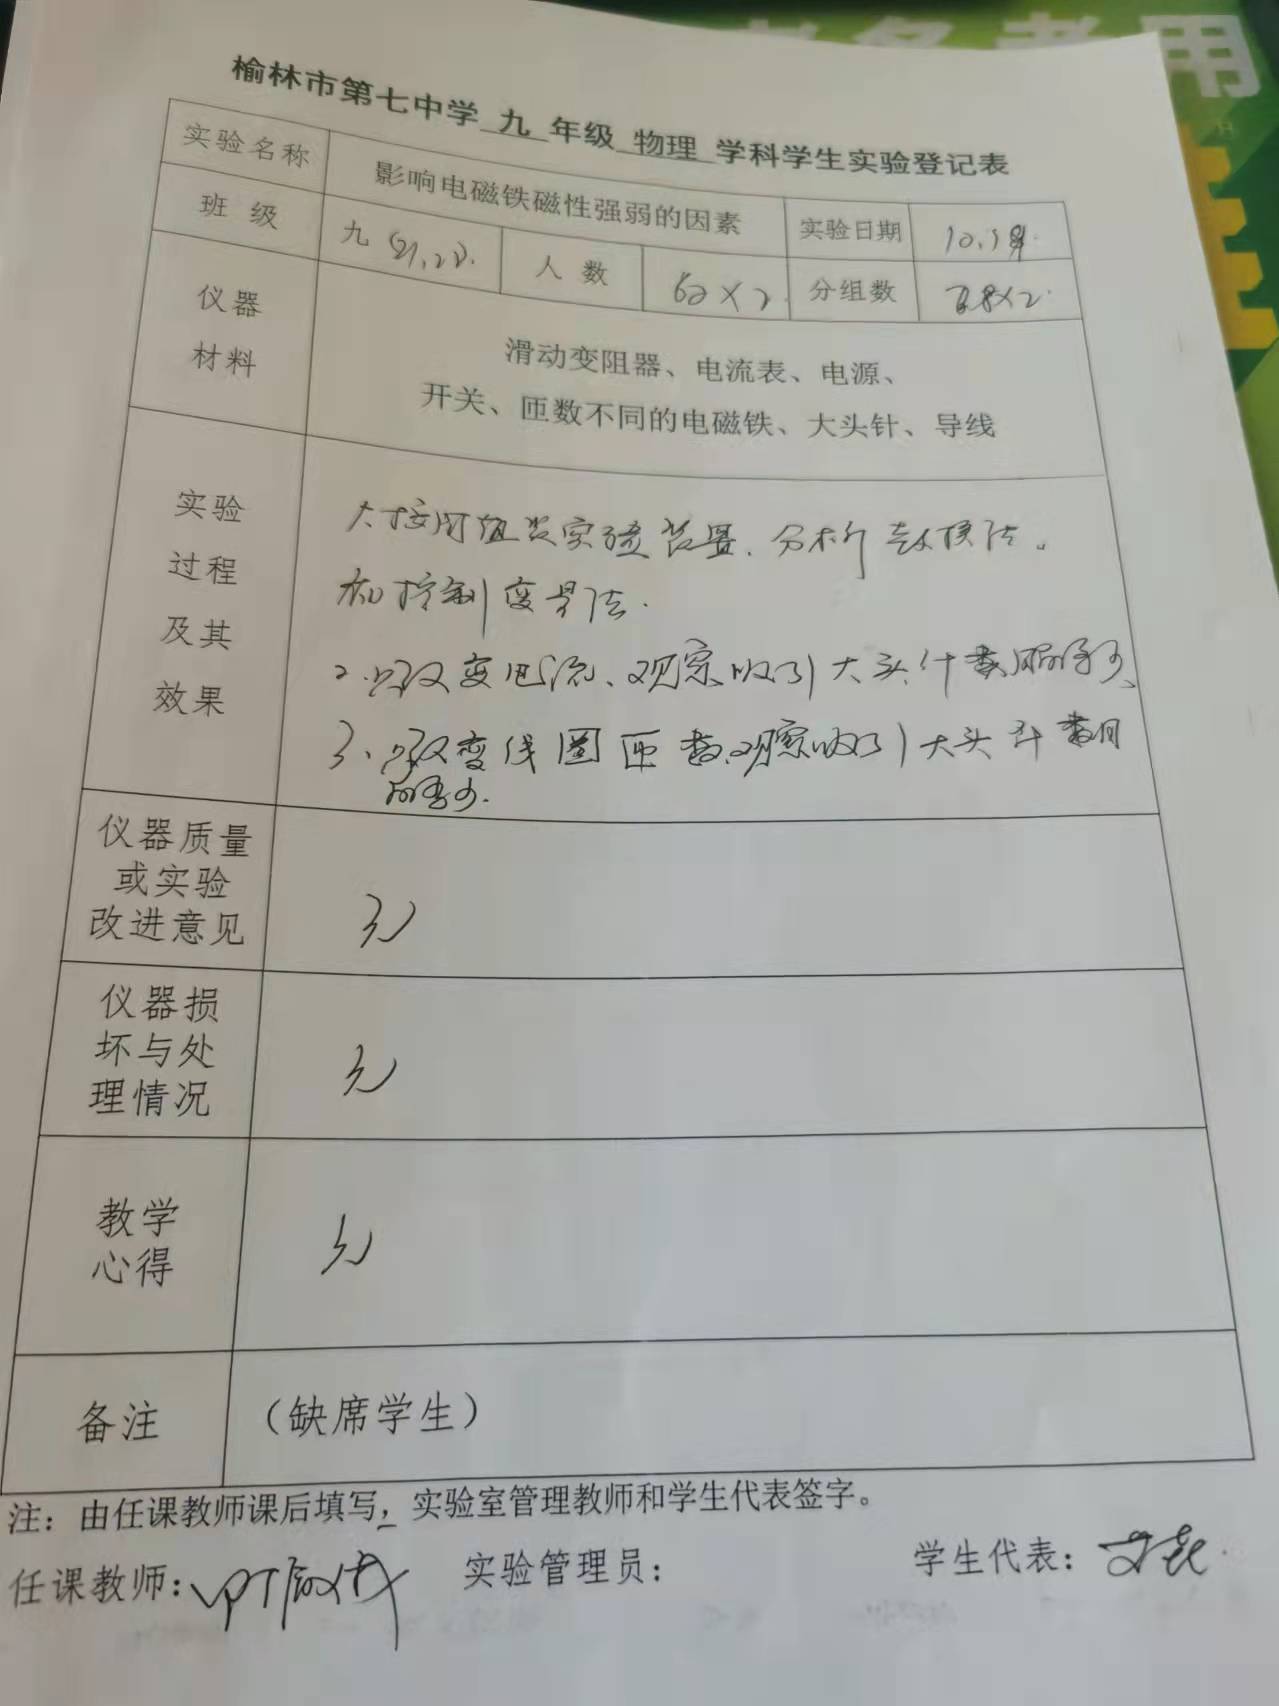 榆林市第七中学 九 年级 物理 学科学生实验登记表
实验名称 影响电磁铁磁性强弱的因素 实验日期
班 级 九 (21,22). 人 数 60×2. 分组数 28×2.
仪器
材料
滑动变阻器、电流表、电源、
开关、匝数不同的电磁铁、大头针、导线
实验
过程
及其
效果
按图组装实验装置. 分析 转换法.
和控制变量法.
2.只改变电流、观察吸引大头针数目的多少、
3、只改变线圈匝数,观察吸引大头针数目
的多少.
仪器质量
或实验
改进意见
无
仪器损
坏与处
理情况
无
教学
心得
无
备注 (缺席学生)
注：由任课教师课后填写，实验室管理教师和学生代表签字。
任课教师: 实验管理员: 学生代表: